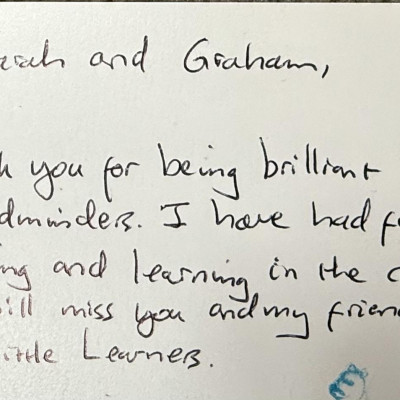 arah and Graham,
k you for being brilliant
dminders. I have had f
ing and learning in the c
ill miss you and my frien
ittle Learners.